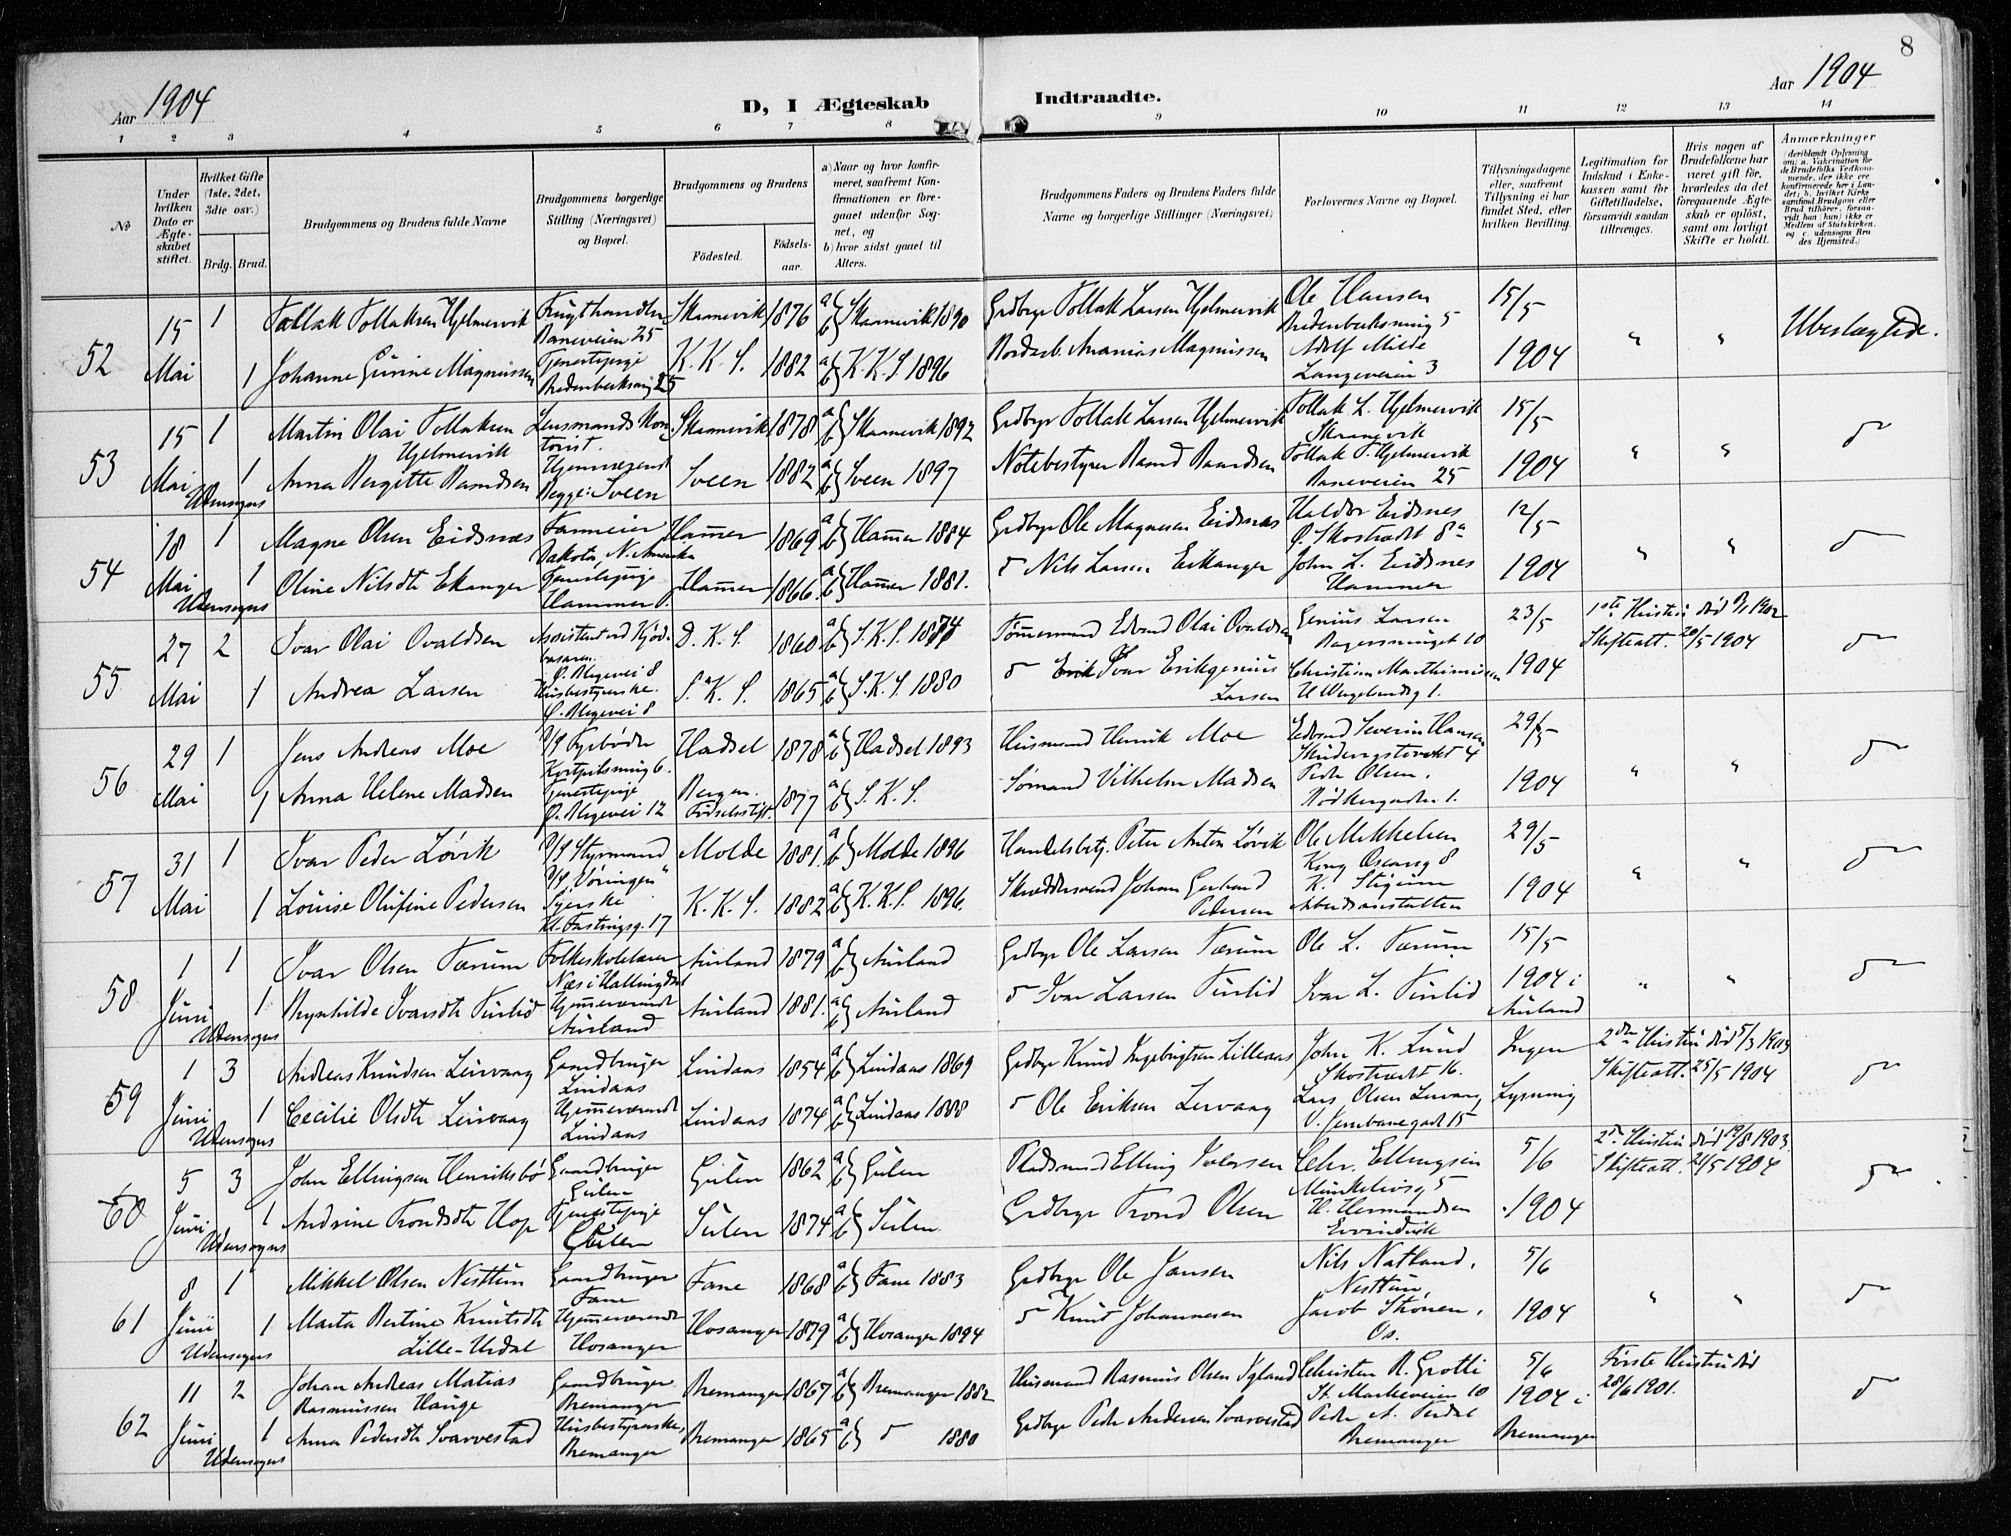 8
Aar 1904
D, I Ægteskab Indtraadte.
Aar 1904
1 2 3 4 5 6 7 8 9 10 11 12 13 14
No
Under hvilken Dato er Ægteskabet stiftet.
Hvilket Gifte (1ste, 2det, 3die osv.)
Brdg. Brud.
Brudgommens og Brudens fulde Navne
Brudgommens borgerlige Stilling (Næringsvei) og Bopæl.
Brudgommens og Brudens
Födested.
Födselsaar.
a) Naar og hvor konfirmeret, saafremt Konfirmationen er foregaaet udenfor Sognet, og
b) hvor sidst gaaet til Alters.
Brudgommens Faders og Brudens Faders fulde Navne og borgerlige Stillinger (Næringsvei)
Forlovernes Navne og Bopæl.
Tillysningsdagene eller, saafremt Tillysning ei har fundet Sted, efter hvilken Bevilling.
Legitimation for Indskud i Enkekassen samt for Giftetilladelse, forsaavidt saadan tiltrænges.
Hvis nogen af Brudefolkene har været gift för, hvorledes da det foregaaende Ægteskab er oplöst, samt om lovligt Skifte er holdt.
Anmærkninger
52
15 Mai 1 Tollak Tollaksen Hjelmervik Frugthandler Baneveien 25 Skaanevik 1876 a b Skaanevik 1890 Grdbrgr Tollak Larsen Hjelmervik Ole Hansen 5 15/5 " " Ubeslægtede.
1 Johanne Gurine Magnussen Tjenestepige 25 K.K.S. 1882 a b K.K.S. 1896 Ananias Magnussen Adolf Milde Langeveien 3 1904
53
15 Mai 1 Martin Olai Tollaksen Hjelmervik Lensmands Kontorist. Skaanevik 1878 a b Skaanevik 1892 Grdbrgr Tollak Larsen Hjelmervik Tollak L. Hjelmervik Skaanevik 15/5 " " do
Udensogns 1 Anna Bergitte Baardsen Hjemmeværende Begge: Sveen Sveen 1882 a b Sveen 1897 Notebestyrer Baard Baardsen Tollak T. Hjelmervik Baneveien 25 1904
54
18 Mai 1 Magne Olsen Eidsnæs Farmeier Dakota, N. Amerika Hammer 1869 a b Hammer 1884 Grdbrgr Ole Magnesen Eidsnæs Haldor Eidsnes Ø. Skostrædet 8a 12/5 " " do
Udensogns 1 Oline Nilsdtr Eikanger Tjenestepige Hammer Hammer 1866 a b Hammer 1881. do Nils Larsen Eikanger John L. Eidsnes Hammer 1904
55
27 Mai 2 Ivar Olai Ovaldsen Assistent ved Kjødbasaren. Ø. Blegevei 8 D.K.S. 1860 a b S.K.S. 1874 Tømmermand Edvard Olai Ovaldsen Genius Larsen 10 23/5 1ste Hustru død 1902 Skifteatt. 20/5 1904 do
1 Andrea Larsen Husbestyrerske. Ø. Blegevei 8 S.K.S. 1865 a b S.K.S. 1880 do Ivar Erikgenius Larsen Christian Marthinussen H Wergelandsg 1. 1904
56
29 Mai 1 Jens Andreas Moe Fyrbøder 6. Hadsel 1878 a b Hadsel 1893 Husmand Henrik Moe Edvard Severin Hansen 4 29/5 " " do
1 Anna Helene Madsen Tjenestepige Ø. Blegevei 12 Bergen. Fødselsstift. 1877 a b S.K.S. Sømand Vilhelm Madsen Peder Olsen. 1. 1904
57
31 Mai 1 Ivar Peder Løvik D/S Styrmand D/S "Vøringen" Molde 1881. a b Molde 1896 Handelsbetj. Peter Anton Løvik Ole Mikkelsen Kong Oscarsg 8 29/5 " " do
1 Louise Olufine Pedersen Syerske Kl. Fastingsg. 17 K.K.S. 1882 a b K.K.S. 1896. Skræddersvend Johan Gerhard Pedersen K. Stigum Arbeidsanstalten 1904
58
1 Juni 1 Ivar Olsen Tærum Folkeskolelærer Næs i Hallingdal Aurland 1879 a b Aurland Grdbrgr Ole Larsen Tærum Ole L. Tærum 15/5 " " do
Udensogns 1 Brynhilde Ivarsdtr Turlid Hjemmeværende Aurland Aurland 1881. a b Aurland do Ivar Larsen Turlid Ivar L. Turlid 1904 i Aurland
59
1 Juni 3 Andreas Knudsen Leirvaag Gaardbruger Lindaas Lindaas 1854 a b Lindaas 1869 Grdbrgr Knud Ingebrigtsen Lilleaas John K. Lund Skostrædet 16. Ingen 2den Hustru død 5/3 1903 Skifteatt. 25/5 1904 do
Udensogns 1 Cecilie Olsdtr Leirvaag Hjemmeværende Lindaas Lindaas 1874 a b Lindaas 1888 do Ole Eriksen Lervaag Lars Olsen Lervaag V. Jernbanegade 15 Lysning
60
5 Juni 3 John Ellingsen Henriksbø Gaardbruger Gulen Gulen 1862 a b Gulen Pladsmand Elling Chr. Ellingsen Munkelivsg 5 5/6 2den Hustru død 19/8 1903. Skifteatt. 21/5 1904 do
Udensogns 1 Andrine Trondsdtr Hop Tjenestepige Gulen Sulen 1874 a b Sulen Grdbrgr Trond Olsen H. Hermundsen Eivindvik 1904
61
8 Juni 1 Mikkel Olsen Nesttun Gaardbruger Fane Fane 1868 a b Fane 1883 Grdbrgr Ole Jansen Nils Natland, Nesttun, 5/6 " " do
Udensogns 1 Marta Bertine Knutsdtr Lille-Urdal Hjemmeværende Hosanger Hosanger 1879 a b Hosanger 1894 do Knut Johannesen Jacob Skonen, Os. 1904
62
11 Juni 2 Johan Andreas Matias Rasmussen Hauge Gaardbruger Bremanger Bremanger 1867 a b Bremanger 1882 Husmand Rasmus Olsen Christen R. Grotli St. Markeveien 10 5/6 Første Hustru død 28/6 1901. do
Udensogns 1 Anna Pedersdtr Svarvestad Husbestyrerske, Bremanger Bremanger 1865 a b do 1880 Grdbrgr Peder Andersen Svarvestad Peder A. Bremanger 1904 i Bremanger